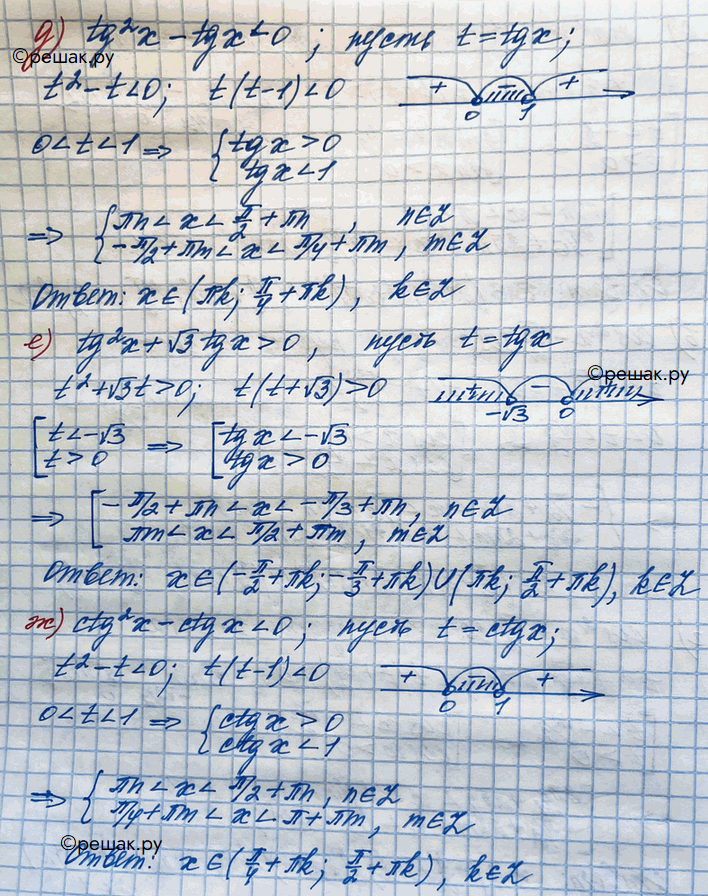 д) tg²x - tgx < 0 ; пусть t = tgx ;
©решак.ру
t² - t < 0 ; t(t-1) < 0 + - + 0 1
0 < t < 1 ⇒ { tgx > 0
tgx < 1
⇒ { πn < x < π/2 + πn , n ∈ Z
-π/2 + πm < x < π/4 + πm , m ∈ Z
Ответ: x ∈ (πk ; π/4 + πk) , k ∈ Z
е) tg²x + √3 tgx > 0 , пусть t = tgx
©решак.ру
t² + √3t > 0 ; t(t+√3) > 0 + - + -√3 0
[ t < -√3 ⇒ [ tgx < -√3
t > 0 tgx > 0
⇒ [ -π/2 + πn < x < -π/3 + πn , n ∈ Z
πm < x < π/2 + πm , m ∈ Z
Ответ: x ∈ (-π/2 + πk ; -π/3 + πk) ∪ (πk ; π/2 + πk) , k ∈ Z
ж) ctg²x - ctgx < 0 ; пусть t = ctgx ;
t² - t < 0 ; t(t-1) < 0 + - + 0 1
0 < t < 1 ⇒ { ctgx > 0
ctgx < 1
⇒ { πn < x < π/2 + πn , n ∈ Z
π/4 + πm < x < π + πm , m ∈ Z
©решак.ру
Ответ: x ∈ (π/4 + πk ; π/2 + πk) , k ∈ Z